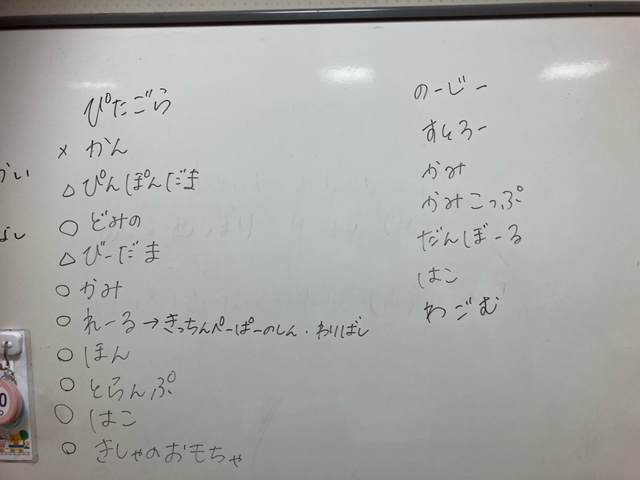 ぴたごら
× かん
△ ぴんぽんだま
○ どみの
△ びーだま
○ かみ
○ れーる→きっちんぺーぱーのしん・わりばし
○ ほん
○ とらんぷ
○ はこ
○ きしゃのおもちゃ
のーじー
すとろー
かみ
かみこっぷ
だんぼーる
はこ
わごむ